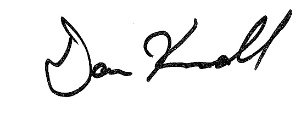 Dan Knoll